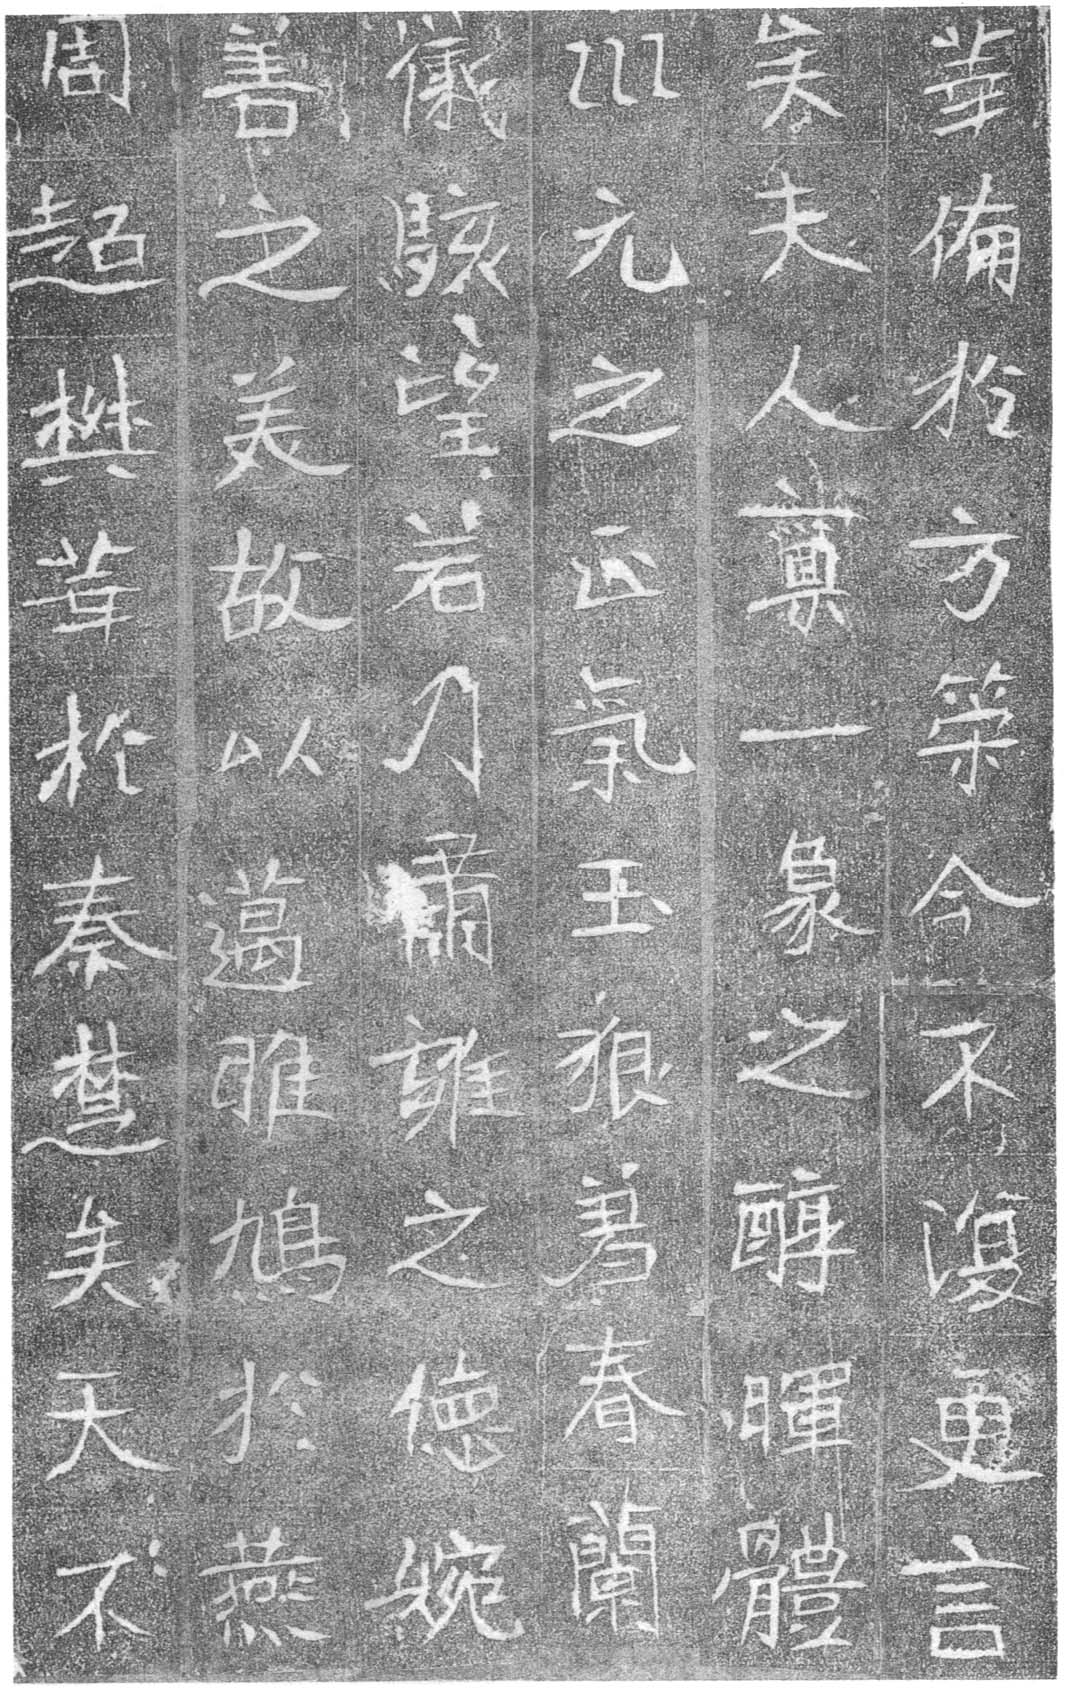 華備於方策今不復更言
矣夫人稟一象之醇暉體
巛元之正氣玉狠春蘭
儀駭望若乃肅雍之德婉
善之美故以邁雎鳩於燕
周超樊華於秦楚矣天不